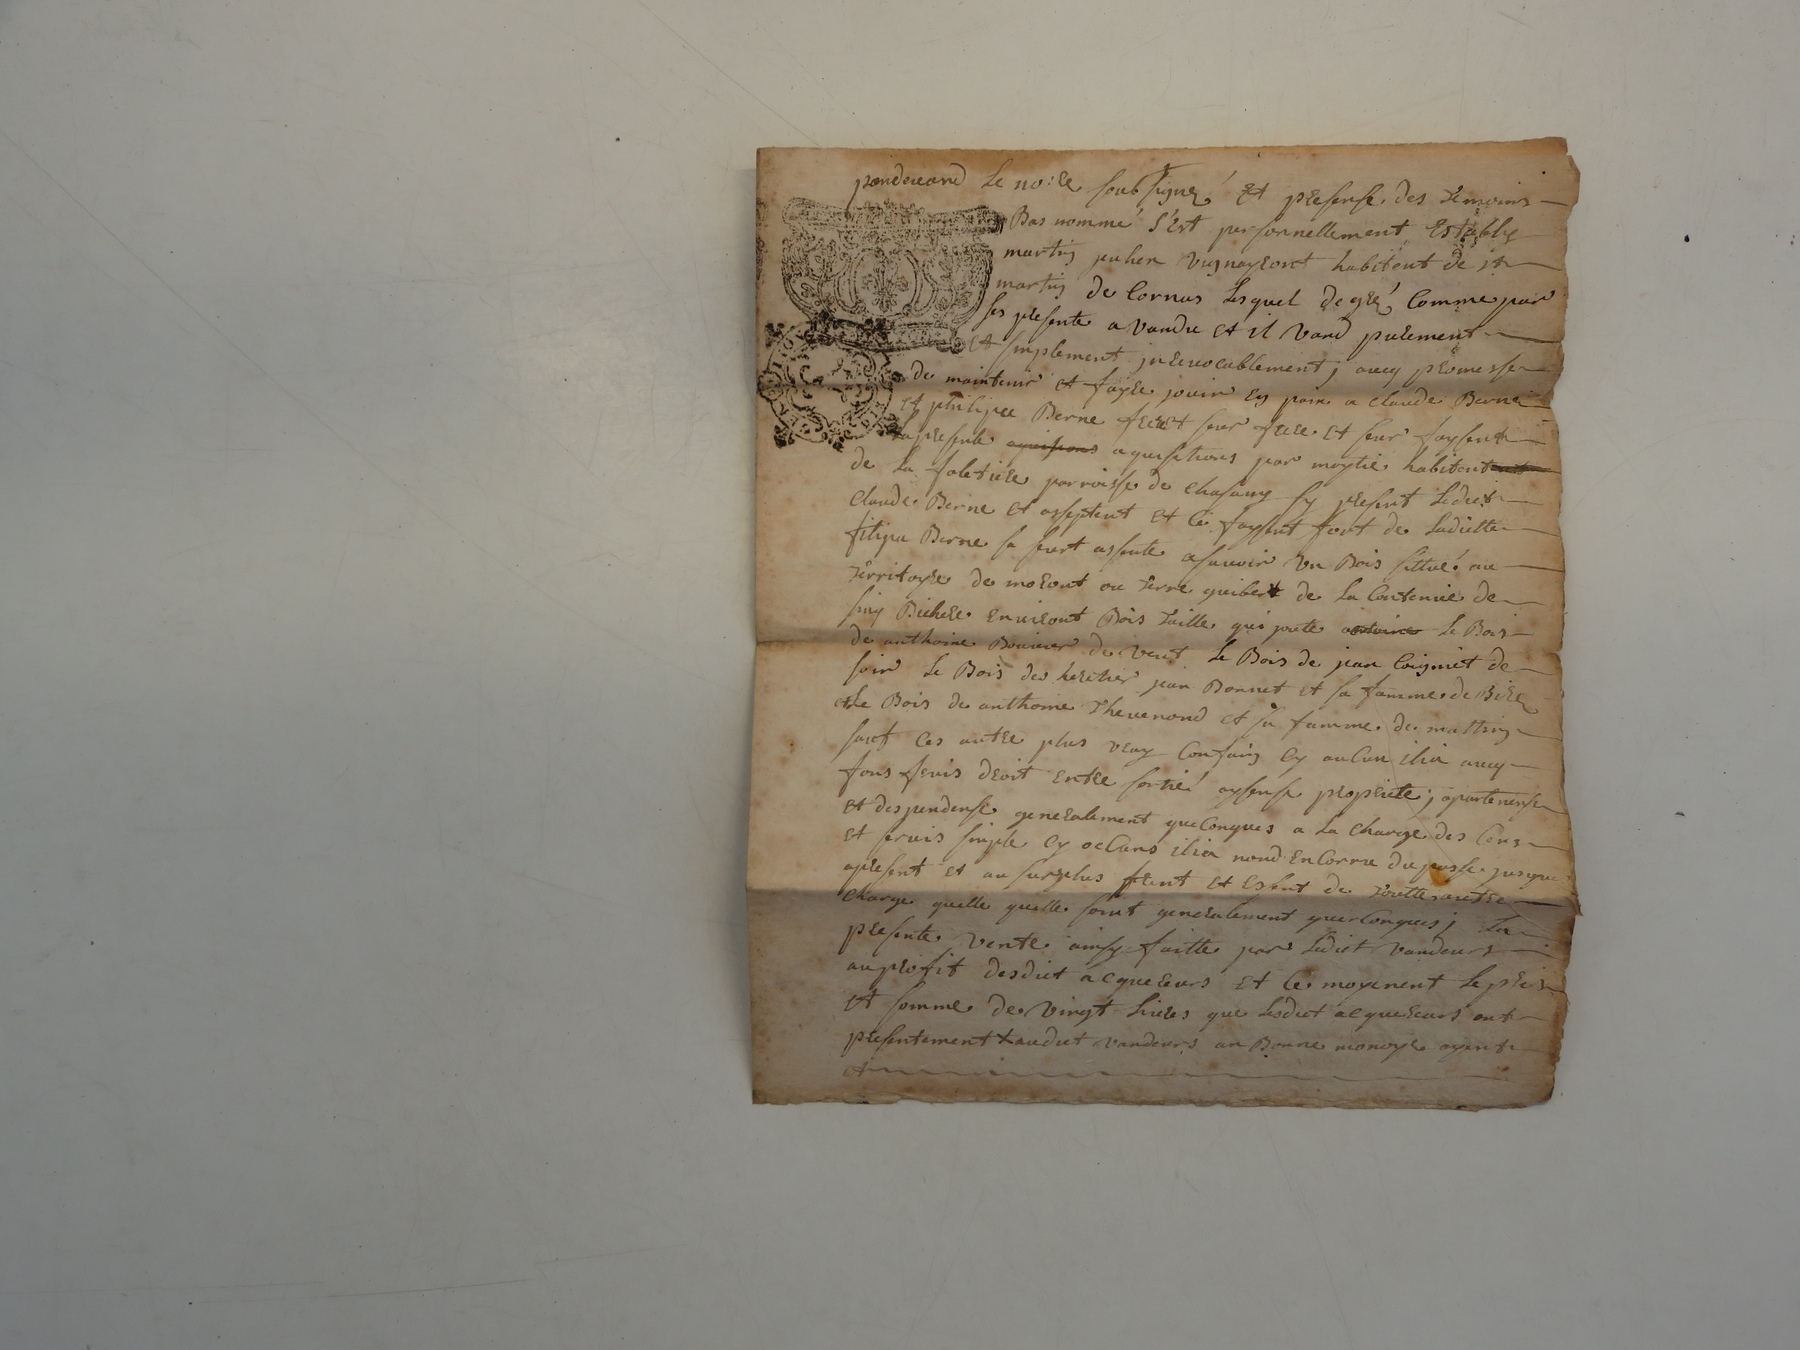 pardevand Le no:re soubsigné Et presense des temoins
Bas nommé s'Est personnellement Establi
martin julien vigneront habitent de st
martin de Cornas Lequel de gré Comme par
ses presente a vandu et il vand purement
et simplement jrrevocablement ; avecq promesse
de maintenir et fayre jouir En paix a claude Berne
et philipee Berne frere et seur frere et seur faysent
la presente aquisitions par moytié habitent
de La foletiere parroisse de chasaux Cy present Ledict
claude Berne et asseptent et Ce faysent fort de Ladictte
filipe Berne sa seurt assente asauoir Un Bois sittué au
terrritoyre de moront ou terre guibert de La Contenue de
sinq Bichere enuiront Bois taille qui joute Le Bois
de anthoine Bouuier de vent Le Bois de jean Coignet de
soir Le Bois des heritier jean Bonnet et sa famme de Bize
et Le Bois de anthoine thevenond et sa famme de mattin
sauf Ces autre plus vray Confain Cy aucun ilia avecq
fons fruis droit Entre sortié aysense propriete ; apartenense
et despendense generalement quelConques a La charge des Cens
et servis simple Cy oeCuns ilia nond EnCorru du passe jusque
apresent et au surplus frent et Exsent de toutte autre
charge quelle quelle soint generalement quelConques ; La
presente vente ainsy faitte par Ledict vandeurs
au profit desdict acquereurs et Ce moyenent Le pris
et somme de vingt Livres que Lesdict acquereurs ont
presentement audict vandeurs an Bonne monoye ayent
et